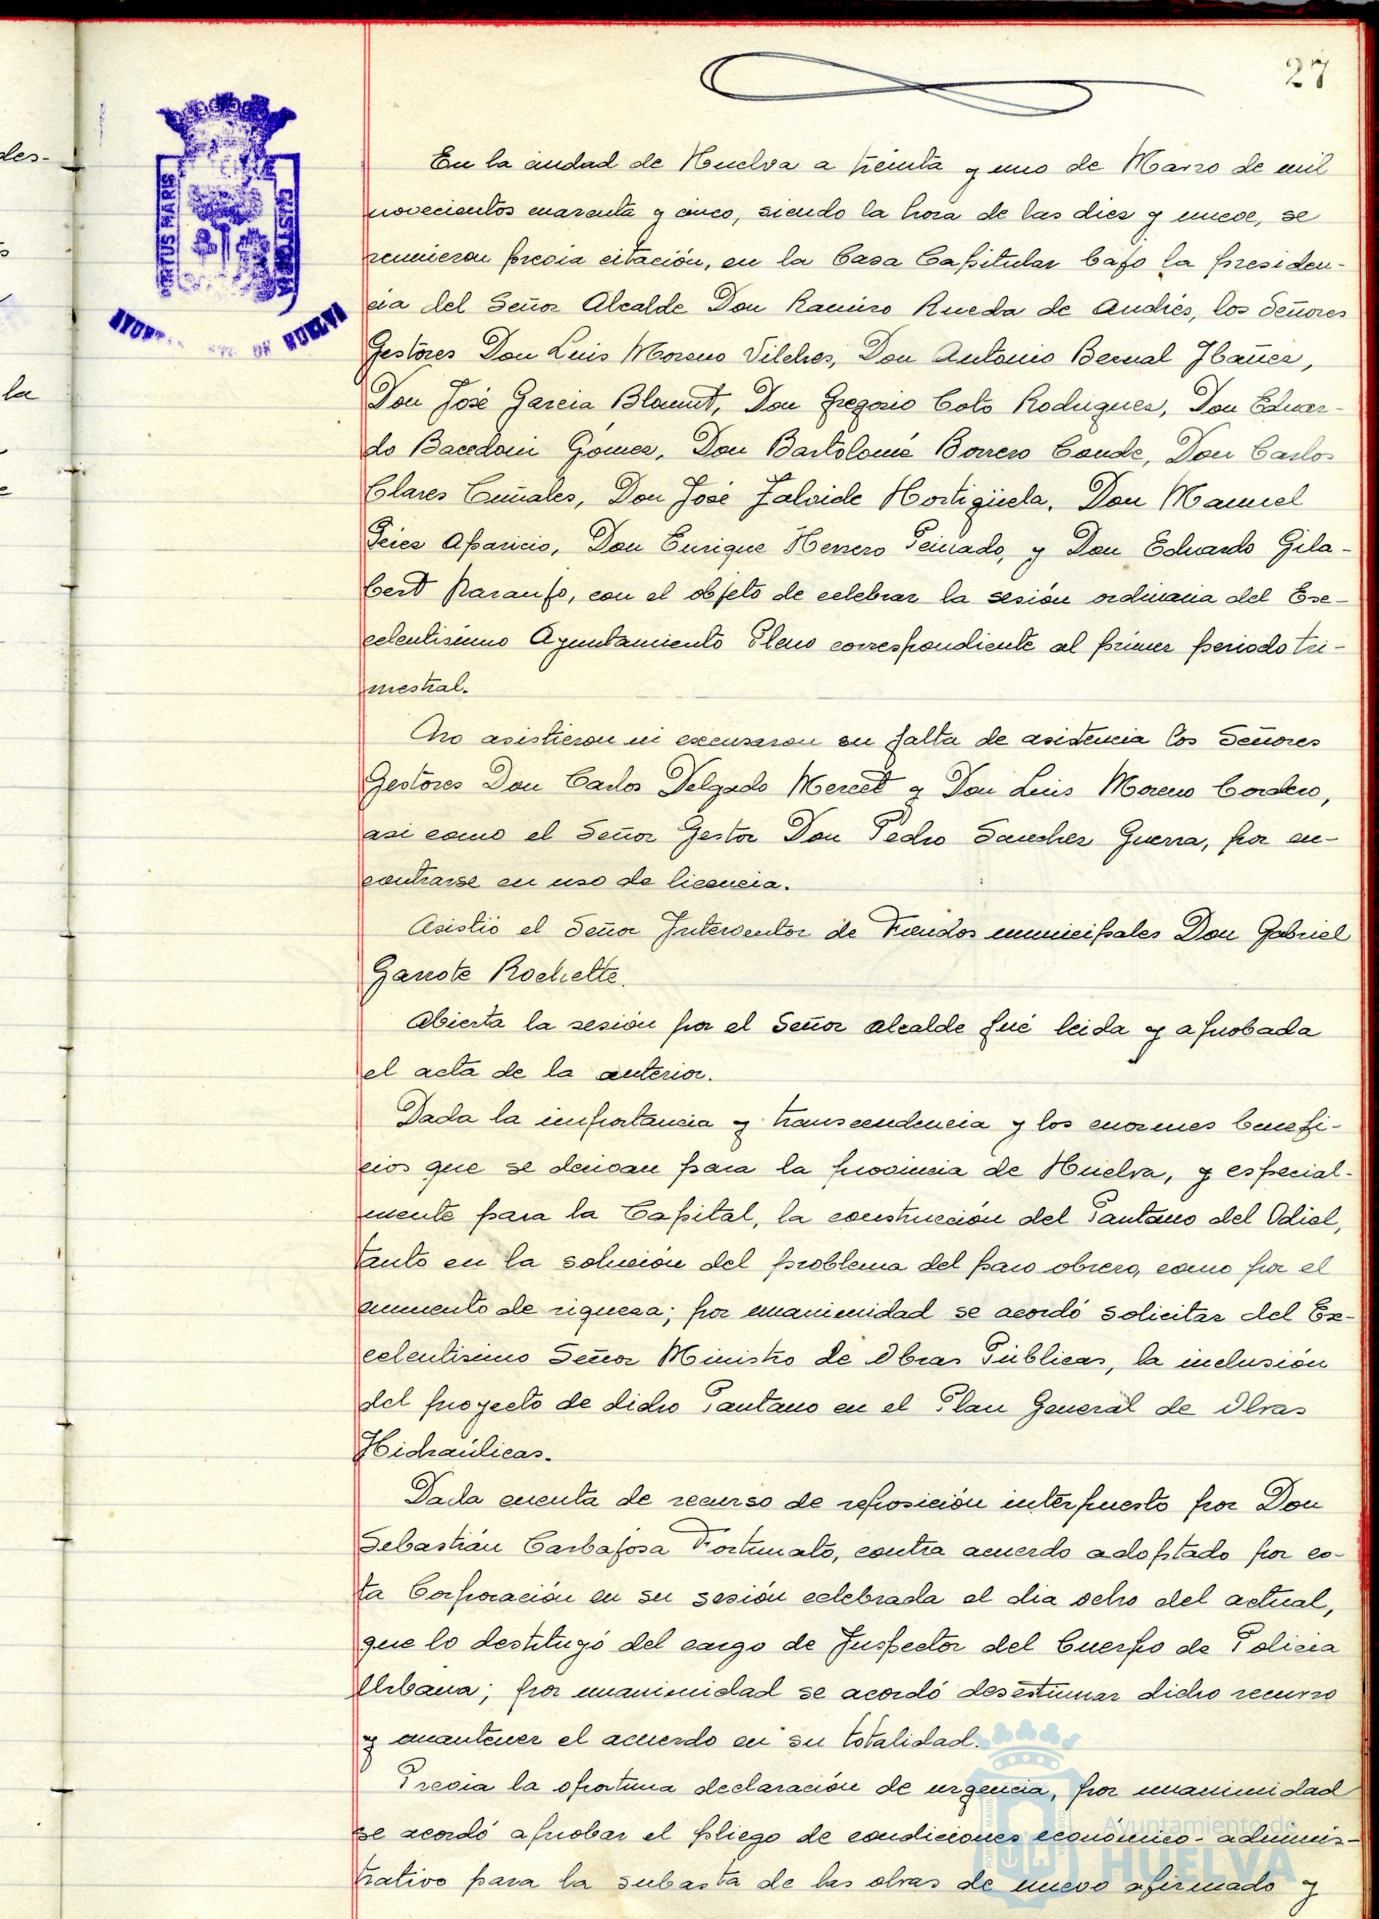 27
des-
la
PORTUS MARIS
CUSTODIA
AYUN
DE HUELVA
En la ciudad de Huelva a treinta y uno de Marzo de mil
novecientos cuarenta y cinco, siendo la hora de las diez y nueve, se
reunieron previa citación, en la Casa Capitular bajo la presiden-
cia del Señor Alcalde Don Ramiro Rueda de Andrés, los Señores
Gestores Don Luis Moreno Vilches, Don Antonio Bernal Ibañez,
Don José Garcia Blomut, Don Gregorio Coto Rodriguez, Don Eduar-
do Bacedoni Gómez, Don Bartolomé Borrero Conde, Don Carlos
Clares Cuñales, Don José Zalvide Hortigüela, Don Manuel
Seiez Aparicio, Don Enrique Herrero Peinado, y Don Eduardo Gila-
bert Naranjo, con el objeto de celebrar la sesión ordinaria del Exe-
celentisimo Ayuntamiento Pleno correspondiente al primer periodo tri-
mestral.
No asistieron ni excusaron su falta de asistencia los Señores
Gestores Don Carlos Delgado Mercet y Don Luis Moreno Cordero,
asi como el Señor Gestor Don Pedro Sanchez Guerra, por en-
contrarse en uso de licencia.
Asistió el Señor Interventor de Fondos municipales Don Gabriel
Garrote Rochette.
Abierta la sesión por el Señor Alcalde fué leida y aprobada
el acta de la anterior.
Dada la importancia y transcendencia y los enormes benefi-
cios que se derivan para la provincia de Huelva, y especial-
mente para la Capital, la construcción del Pantano del Odiel,
tanto en la solución del problema del paro obrero, como por el
aumento de riqueza; por unanimidad se acordó solicitar del Ex-
celentisimo Señor Ministro de Obras Públicas, la inclusión
del proyecto de dicho Pantano en el Plan General de Obras
Hidraúlicas.
Dada cuenta de recurso de reposición interpuesto por Don
Sebastián Carbajosa Fortunato, contra acuerdo adoptado por es-
ta Corporación en su sesión celebrada el dia ocho del actual,
que lo destituyó del cargo de Inspector del Cuerpo de Policia
Urbana; por unanimidad se acordó desestimar dicho recurso
y mantener el acuerdo en su totalidad.
Previa la oportuna declaración de urgencia, por unanimidad
se acordó aprobar el pliego de condiciones económico-adminis-
trativo para la subasta de las obras de nuevo afirmado y
Ayuntamiento de
HUELVA